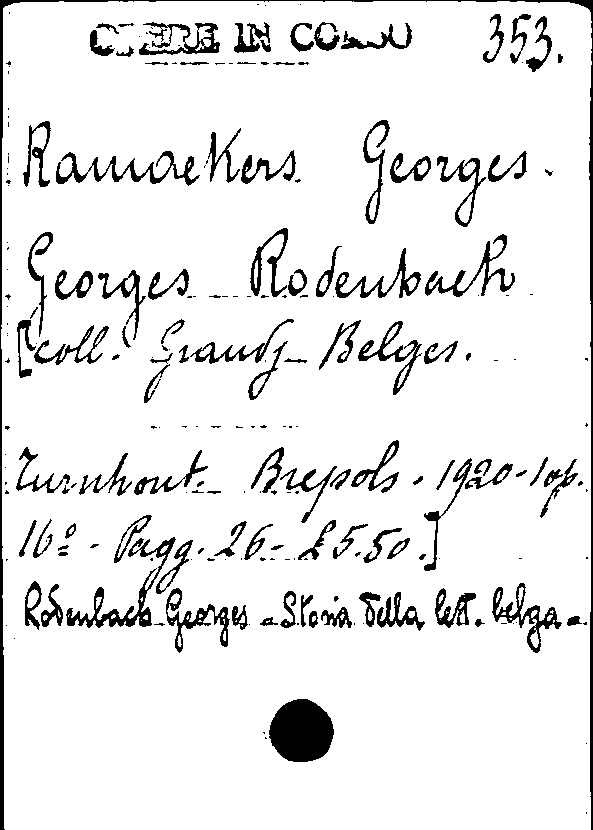 OPERE IN CORSO 353.
Ramaekers Georges.
Georges Rodenbach
[coll. Grands Belges.
Turnhout. Brepols. 1920-1 op.
16º - Pagg. 26 - £5.50.]
Rodenbach Georges - Storia della lett. belga -